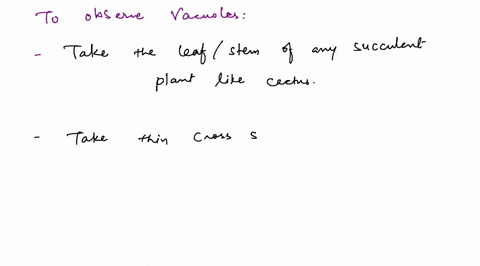 To observe Vacuoles:
- Take the leaf/stem of any succulent
plant like cectus.
- Take thin cross s